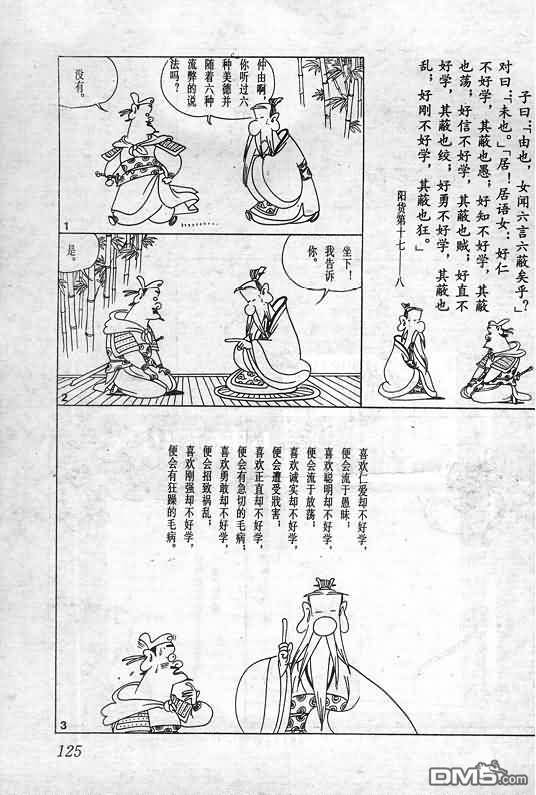 子曰：“由也，女闻六言六蔽矣乎？”
对曰：“未也。”“居！居语女：好仁
不好学，其蔽也愚；好知不好学，其蔽
也荡；好信不好学，其蔽也贼；好直不
好学，其蔽也绞；好勇不好学，其蔽也
乱；好刚不好学，其蔽也狂。
阳货第十七——八
仲由啊
你听过六
种美德并
随着六种
流弊的说
法吗？
没有。
1
坐下！
我告诉
你。
是。
2
喜欢仁爱却不好学，
便会流于愚昧；
喜欢聪明却不好学，
便会流于放荡；
喜欢诚实却不好学，
便会遭受戕害；
喜欢正直却不好学，
便会有急切的毛病；
喜欢勇敢却不好学，
便会招致祸乱；
喜欢刚强却不好学，
便会有狂躁的毛病。
3
125
DM5.com